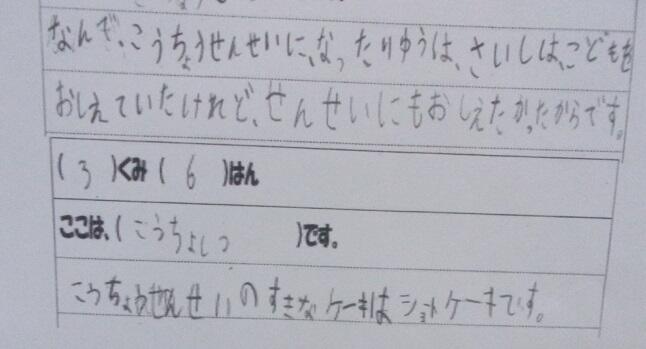 なんで、こうちょうせんせいに、なったりゆうは、さいしは、こどもを
おしえていたけれど、せんせいにもおしえたかったからです。
(3)くみ(6)はん
ここは、(こうちょしつ)です。
こうちょうせんせいのすきなケーキはショトケーキです。